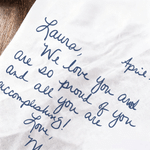 April
Laura,
We love you and
are so proud of you
and all you are
accomplishing!
Love
M